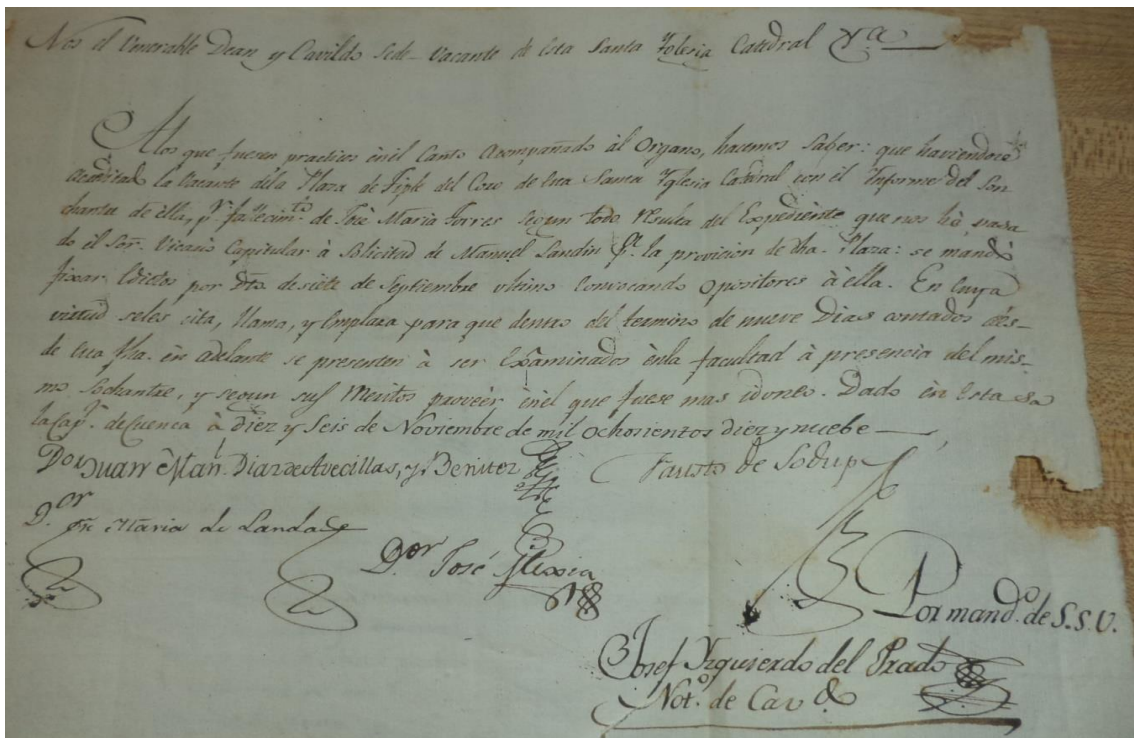 Nos el Venerable Dean y Cavildo Sede-Vacante de esta Santa Yglesia Catedral
A los que fueren practicos en el Canto Acompañado al Organo, hacemos Saber: que haviendose
acreditado la Vacante dela Plaza de Tiple del Coro de esta Santa Yglesia Catedral con el Informe del Son
chantre de ella, y fallecimto. de José Maria Torres segun todo resulta del Expediente que nos hà pasa
do el Sor. Vicario Capitular à Solicitud de Manuel Landin pa. la provicion de dha. Plaza: se mandó
fixar Edictos por Dto. de siete de Septiembre ultimo convocando Opositores à ella. En Cuya
virtud seles cita, llama, y Emplaza para que dentro del termino de nueve Dias contados des-
de esta fha. en adelante se presenten à ser Examinados enla facultad à presencia del mis-
mo Sochantre, y segun sus Meritos proveér enel que fuese mas idoneo. Dado en esta Sa
la Capr. de Cuenca à Diez y Seis de Noviembre de mil Ochosientos diez y nuebe
Dor Juan Man. Diaz de Avecillas, y Benitez
Fausto de Sodup
D.or
Jn. Maria de Landa
D.or José Mexia
Por mando. de S.S.V.
Josef Yzquierdo del Prado
Noto. de Cavdo